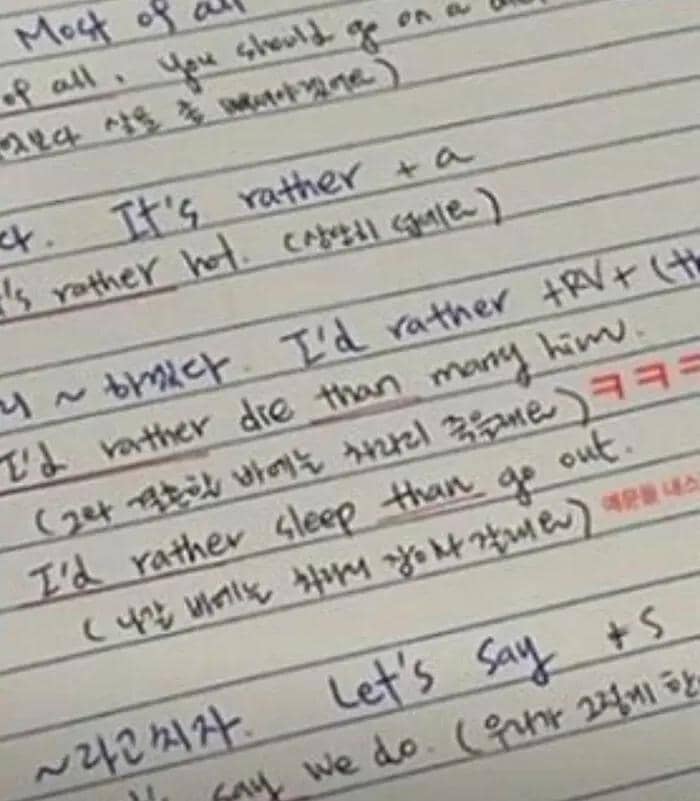 Most of all
of all, you should go on a
상을 좀
다. It's rather + a
's rather hot. (상당히 덥네요)
~ 하겠다. I'd rather +RV+ (th
I'd rather die than marry him. ㅋㅋㅋ
(그와 결혼할 바에는 차라리 죽을래요)
I'd rather sleep than go out. 예문들 내스
(나갈 바에는 차라리 잠이나 잘래요)
~라고치자. Let's say +S
say we do. (우리가 그렇게 한